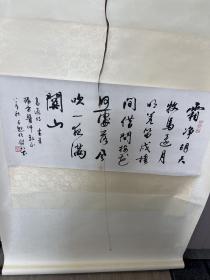 霜净胡天
牧馬還月
明羌笛戍樓
间借問梅花
何處落風
吹一夜满
關山
高適詩